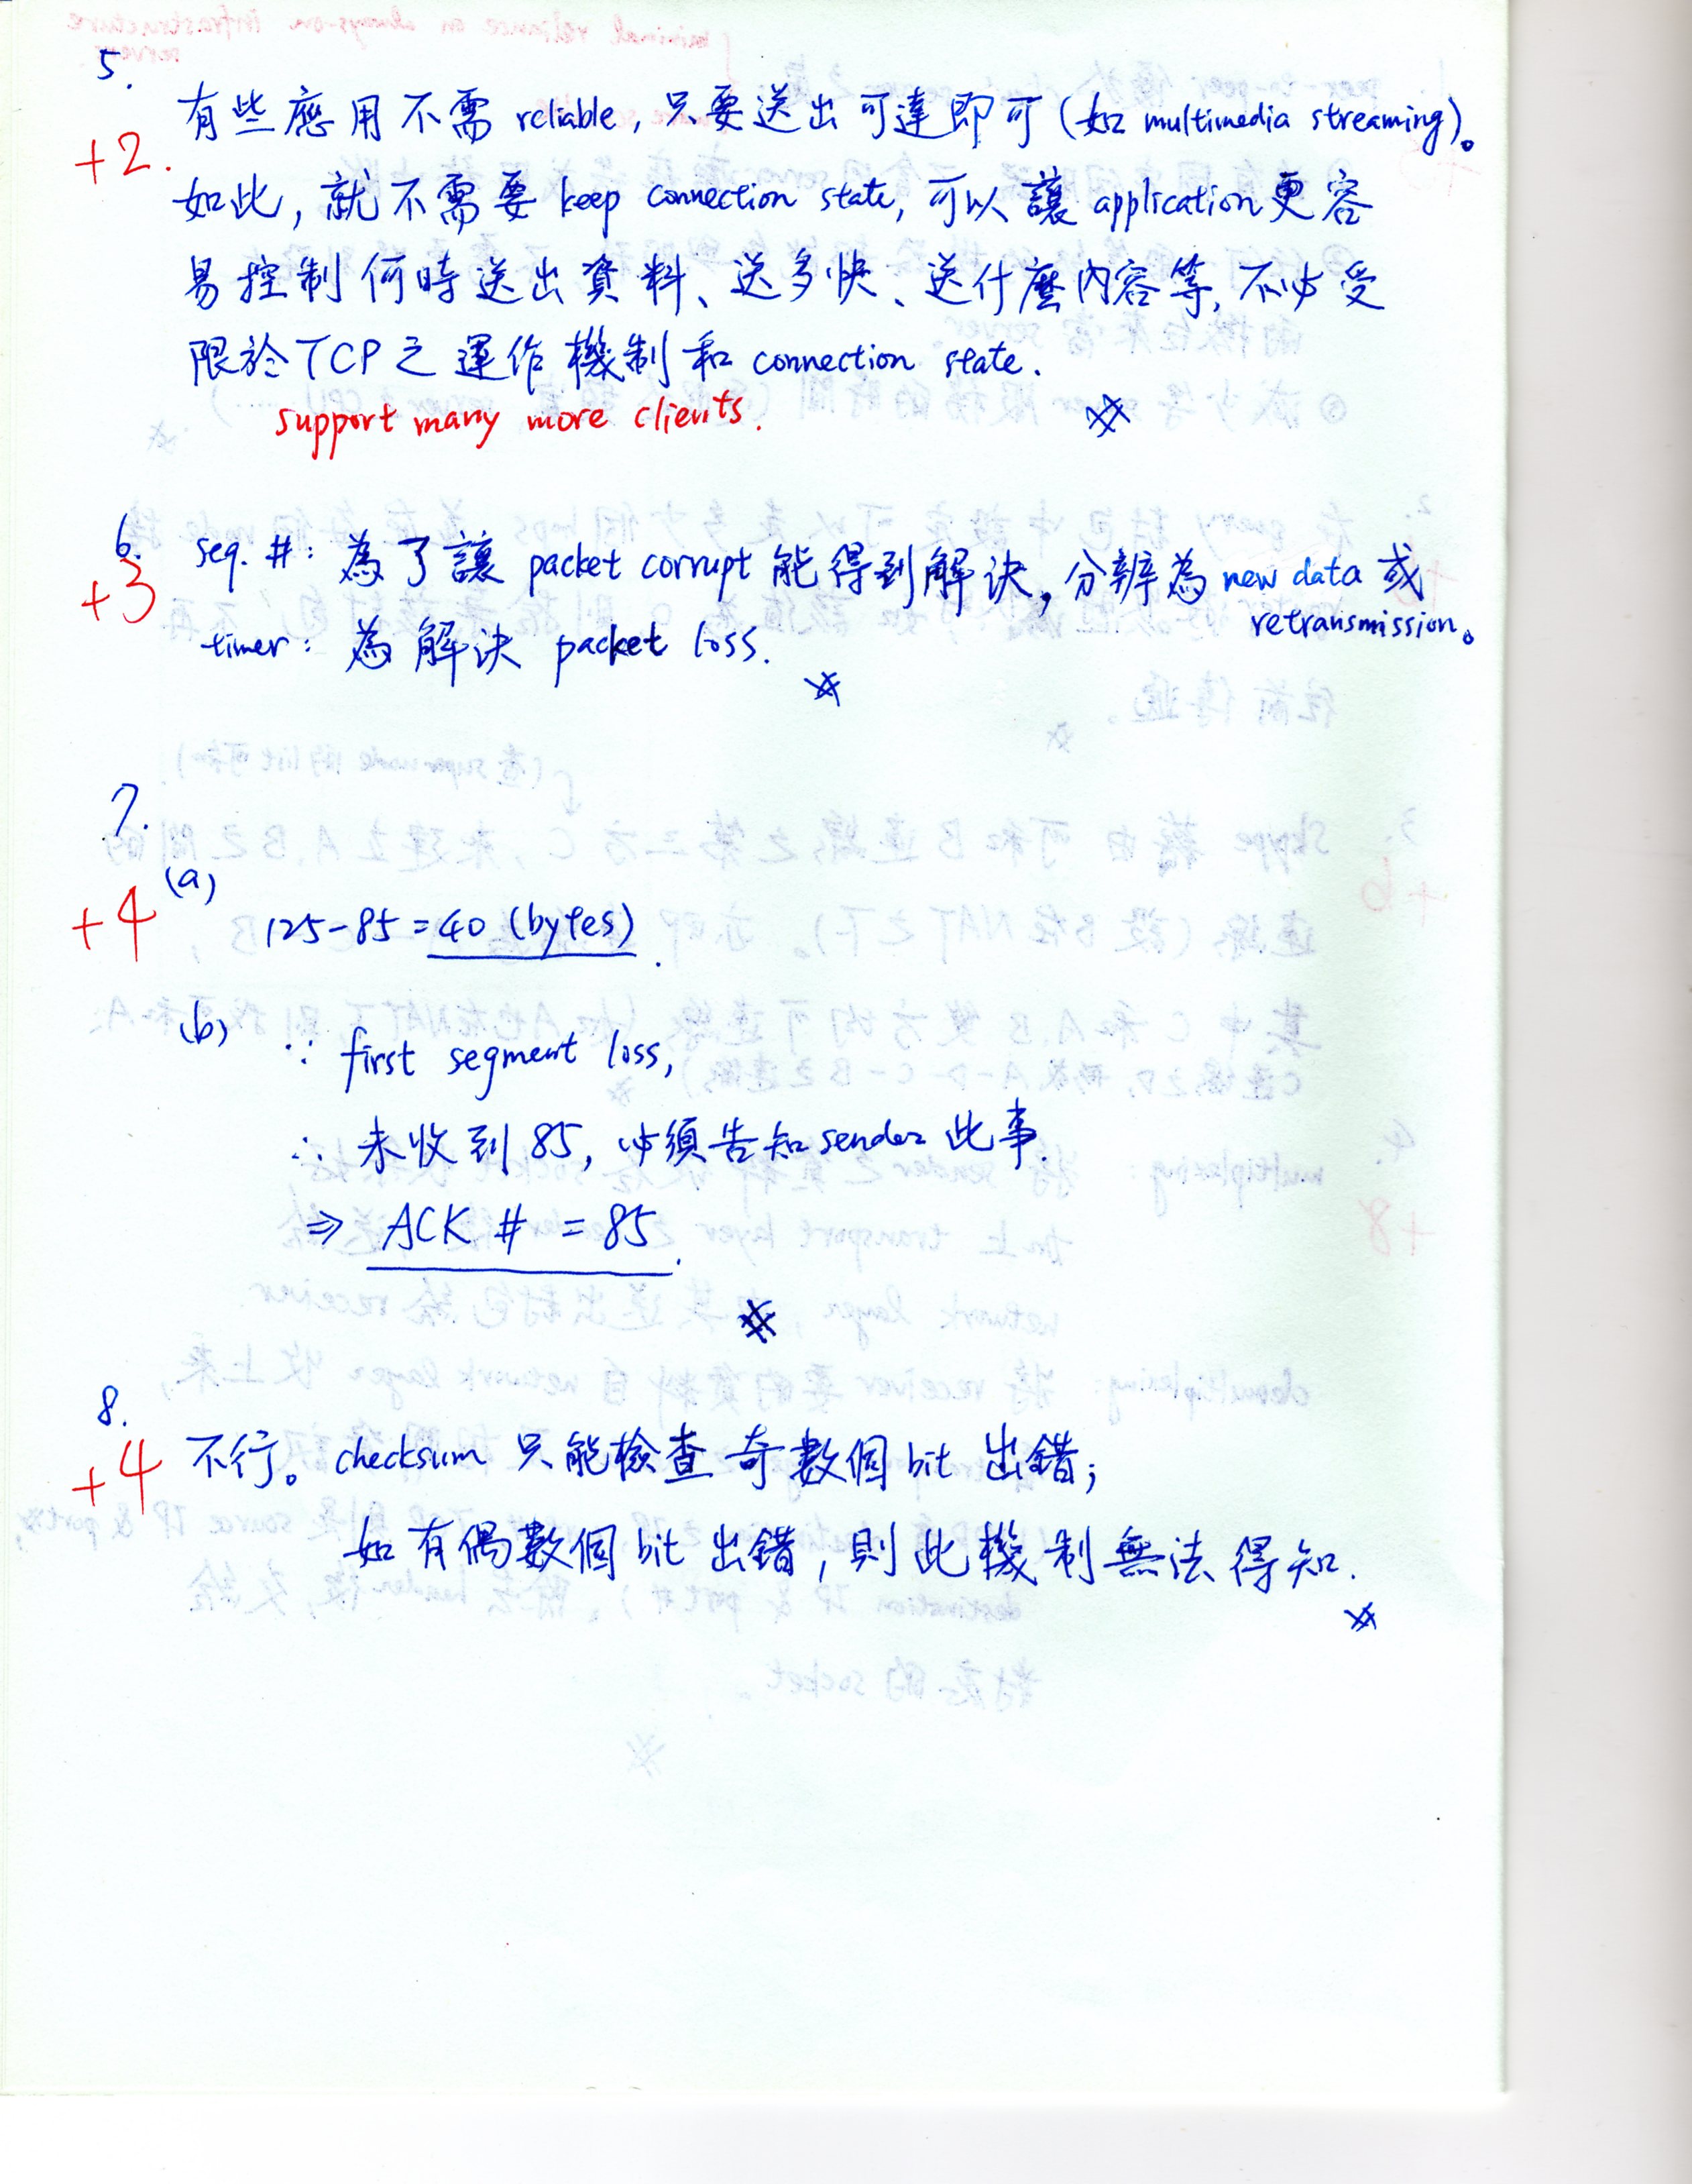 5.
有些應用不需 reliable, 只要送出可達即可 (如 multimedia streaming)。
+2.
如此, 就不需要 keep connection state, 可以讓 application 更容
易控制何時送出資料、送多快、送什麼內容等, 不必受
限於 TCP 之運作機制和 connection state.
support many more clients.
6.
+3
seq. #: 為了讓 packet corrupt 能得到解決, 分辨為 new data 或
retransmission。
timer: 為解決 packet loss.
7.
+4
(a)
125-85 = 40 (bytes).
(b)
∵ first segment loss,
∴ 未收到 85, 必須告知 sender 此事.
⇒ ACK # = 85.
8.
+4
不行。checksum 只能檢查奇數個 bit 出錯;
如有偶數個 bit 出錯, 則此機制無法得知.